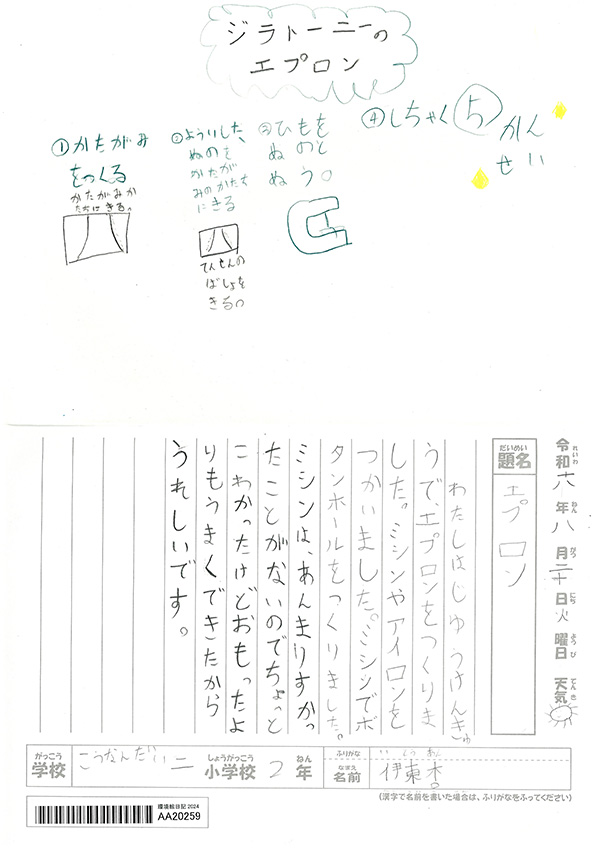 ジラトーニーの
エプロン
①かたがみ
をつくる
かたがみか
たちにきる。
②よういした、
ぬのを
かたが
みのかたち
にきる
てんせんの
ばしょを
きる。
③ひもを
ぬのと
ぬう。
④しちゃく
⑤かん
せい
令和六年八月二十日火曜日 天気
れいわ ねん がつ にち ようび てんき
だいめい
題名
エプロン
わたしはじゆうけんきゅ
うで、エプロンをつくりま
した。ミシンやアイロンを
つかいました。ミシンでボ
タンホールをつくりました。
ミシンは、あんまりすかっ
たことがないのでちょっと
こわかったけどおもったよ
りもうまくできたから
うれしいです。
がっこう
学校
こうなんだい二
しょうがっこう
小学校
2
ねん
年
ふりがな
なまえ
名前
いとう あん
伊東杏。
(漢字で名前を書いた場合は、ふりがなをふってください)
環境絵日記2024
AA20259